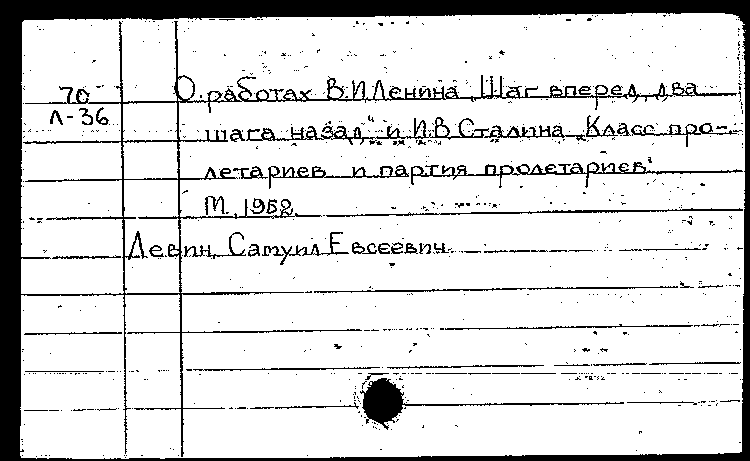 70
Л-36
О работах В.И.Ленина „Шаг вперед, два
шага назад" и И.В.Сталина „Класс про-
летариев и партия пролетариев".
М., 1952.
Левин, Самуил Евсеевич.